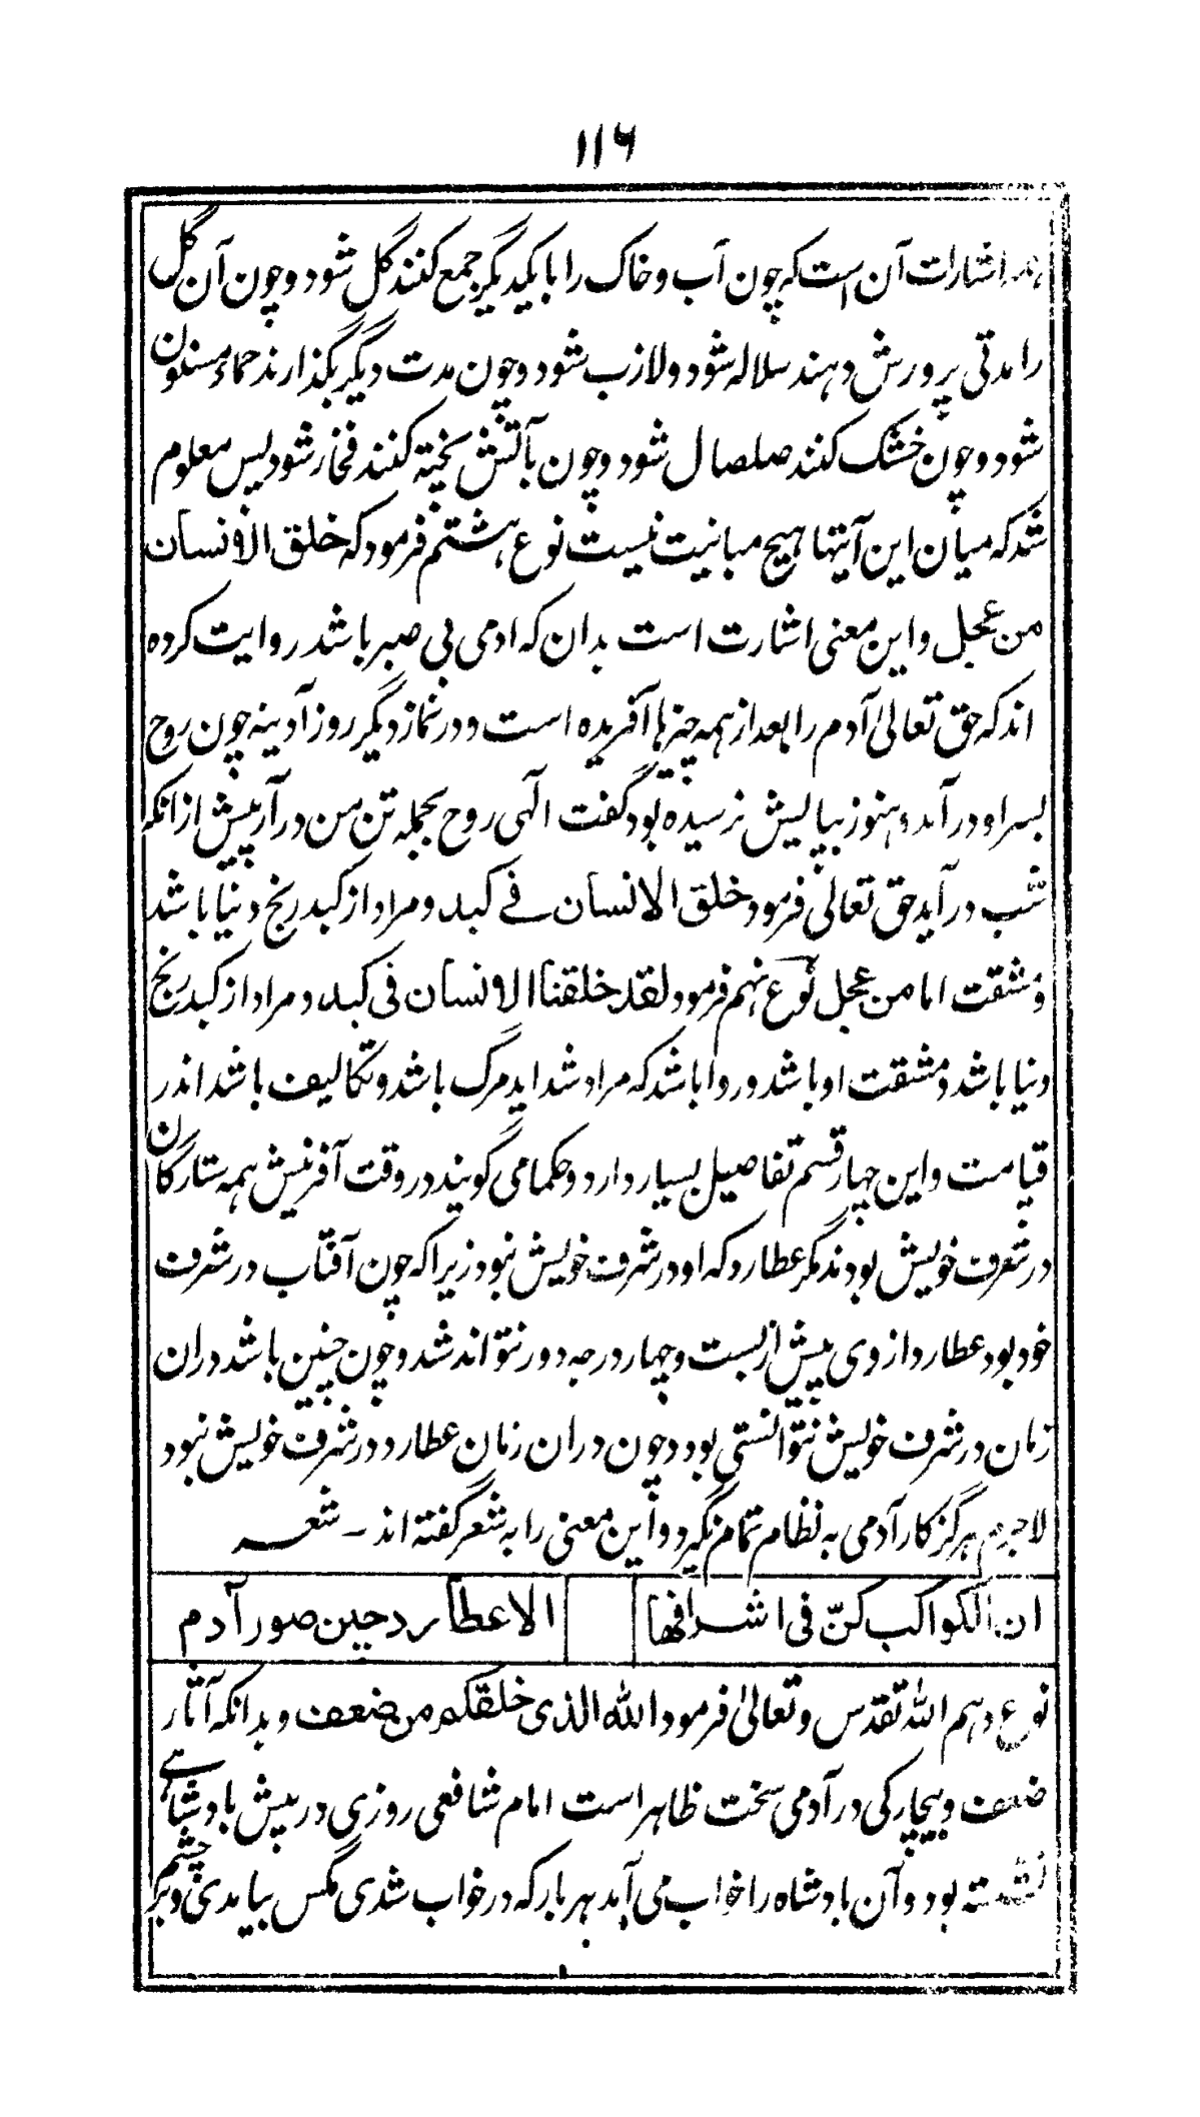 ۱۱۶
اشارات آن است که چون آب و خاک را با یکدیگر جمع کنند گل شود و چون آن گل
را مدتی پرورش دهند سلاله شود و لازب شود و چون مدت دیگر بگذارند حماء مسنون
شود و چون خشک کنند صلصال شود و چون بآتش پخته کنند فخار شود پس معلوم
شد که میان این آیتها هیچ مباینت نیست نوع هشتم فرمود که خلق الانسان
من عجل و این معنی اشارت است بدان که ادمی بی صبر باشد روایت کرده
اند که حق تعالیٰ آدم را بعد از همه چیزها آفریده است و در نماز دیگر روز آدینه چون روح
بسر او در آمد و هنوز بپایش نرسیده بود گفت الٰهی روح بجمله تن من در آر پیش از انکه
شب در آید حق تعالیٰ فرمود خلق الانسان فے کبد و مراد از کبد رنج دنیا باشد
و مشقت اما من عجل نوع نهم فرمود لقد خلقنا الانسان فی کبد و مراد از کبد رنج
دنیا باشد و مشقت او باشد و روا باشد که مراد شداید مرگ باشد و تکالیف باشد اندر
قیامت و این چهار قسم تفاصیل بسیار دارد و حکما می گویند در وقت آفرینش همه ستارگان
در شرف خویش بودند مگر عطارد که او در شرف خویش نبود زیرا که چون آفتاب در شرف
خود بود عطارد از وی پیش از بست و چهار درجه دور نتواند شد و چون چنین باشد دران
زمان در شرف خویش نتوانستی بود و چون دران زمان عطارد در شرف خویش نبود
لاجرم هرگز کار آدمی به نظام تمام نگیرد و این معنی را به شعر گفته اند ـ شعـــر
ان الکواکب کنّ فی اشرافها الا عطارد حین صور آدم
نوع دهم الله تقدس و تعالیٰ فرمود الله الذی خلقکم من ضعف و بدانکه آثار
ضعف و بیچارگی در آدمی سخت ظاهر است امام شافعی روزی در پیش بادشاهے
نشسته بود و آن بادشاه را خواب می آمد هر بار که در خواب شدی مگس بیامدی و بر چشم